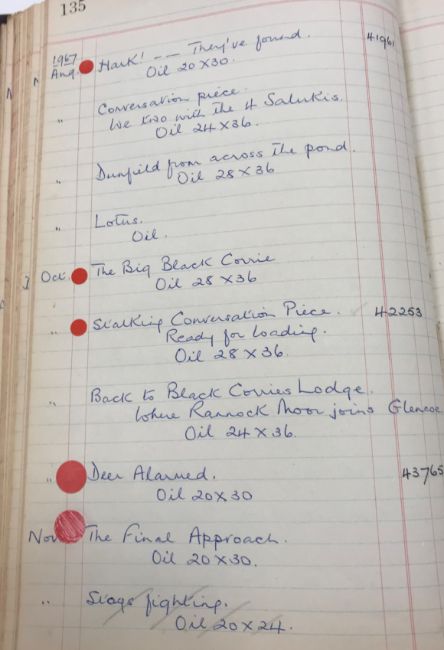 135
1967
Aug. Hark! -- They've found. 41961
Oil 20 x 30.
Conversation piece.
" We two with the 4 Salukis.
Oil 24 x 36.
" Dunfield from across the pond.
Oil 28 x 36
" Lotus.
Oil.
Oct. The Big Black Corrie
Oil 28 x 36
" Stalking Conversation Piece. 42253
Ready for loading.
Oil 28 x 36.
" Back to Black Corries Lodge.
Where Rannock Moor joins Glencoe
Oil 24 x 36.
" Deer Alarmed. 43765
Oil 20 x 30
Nov. The Final Approach.
Oil 20 x 30.
" Stags fighting.
Oil 20 x 24.